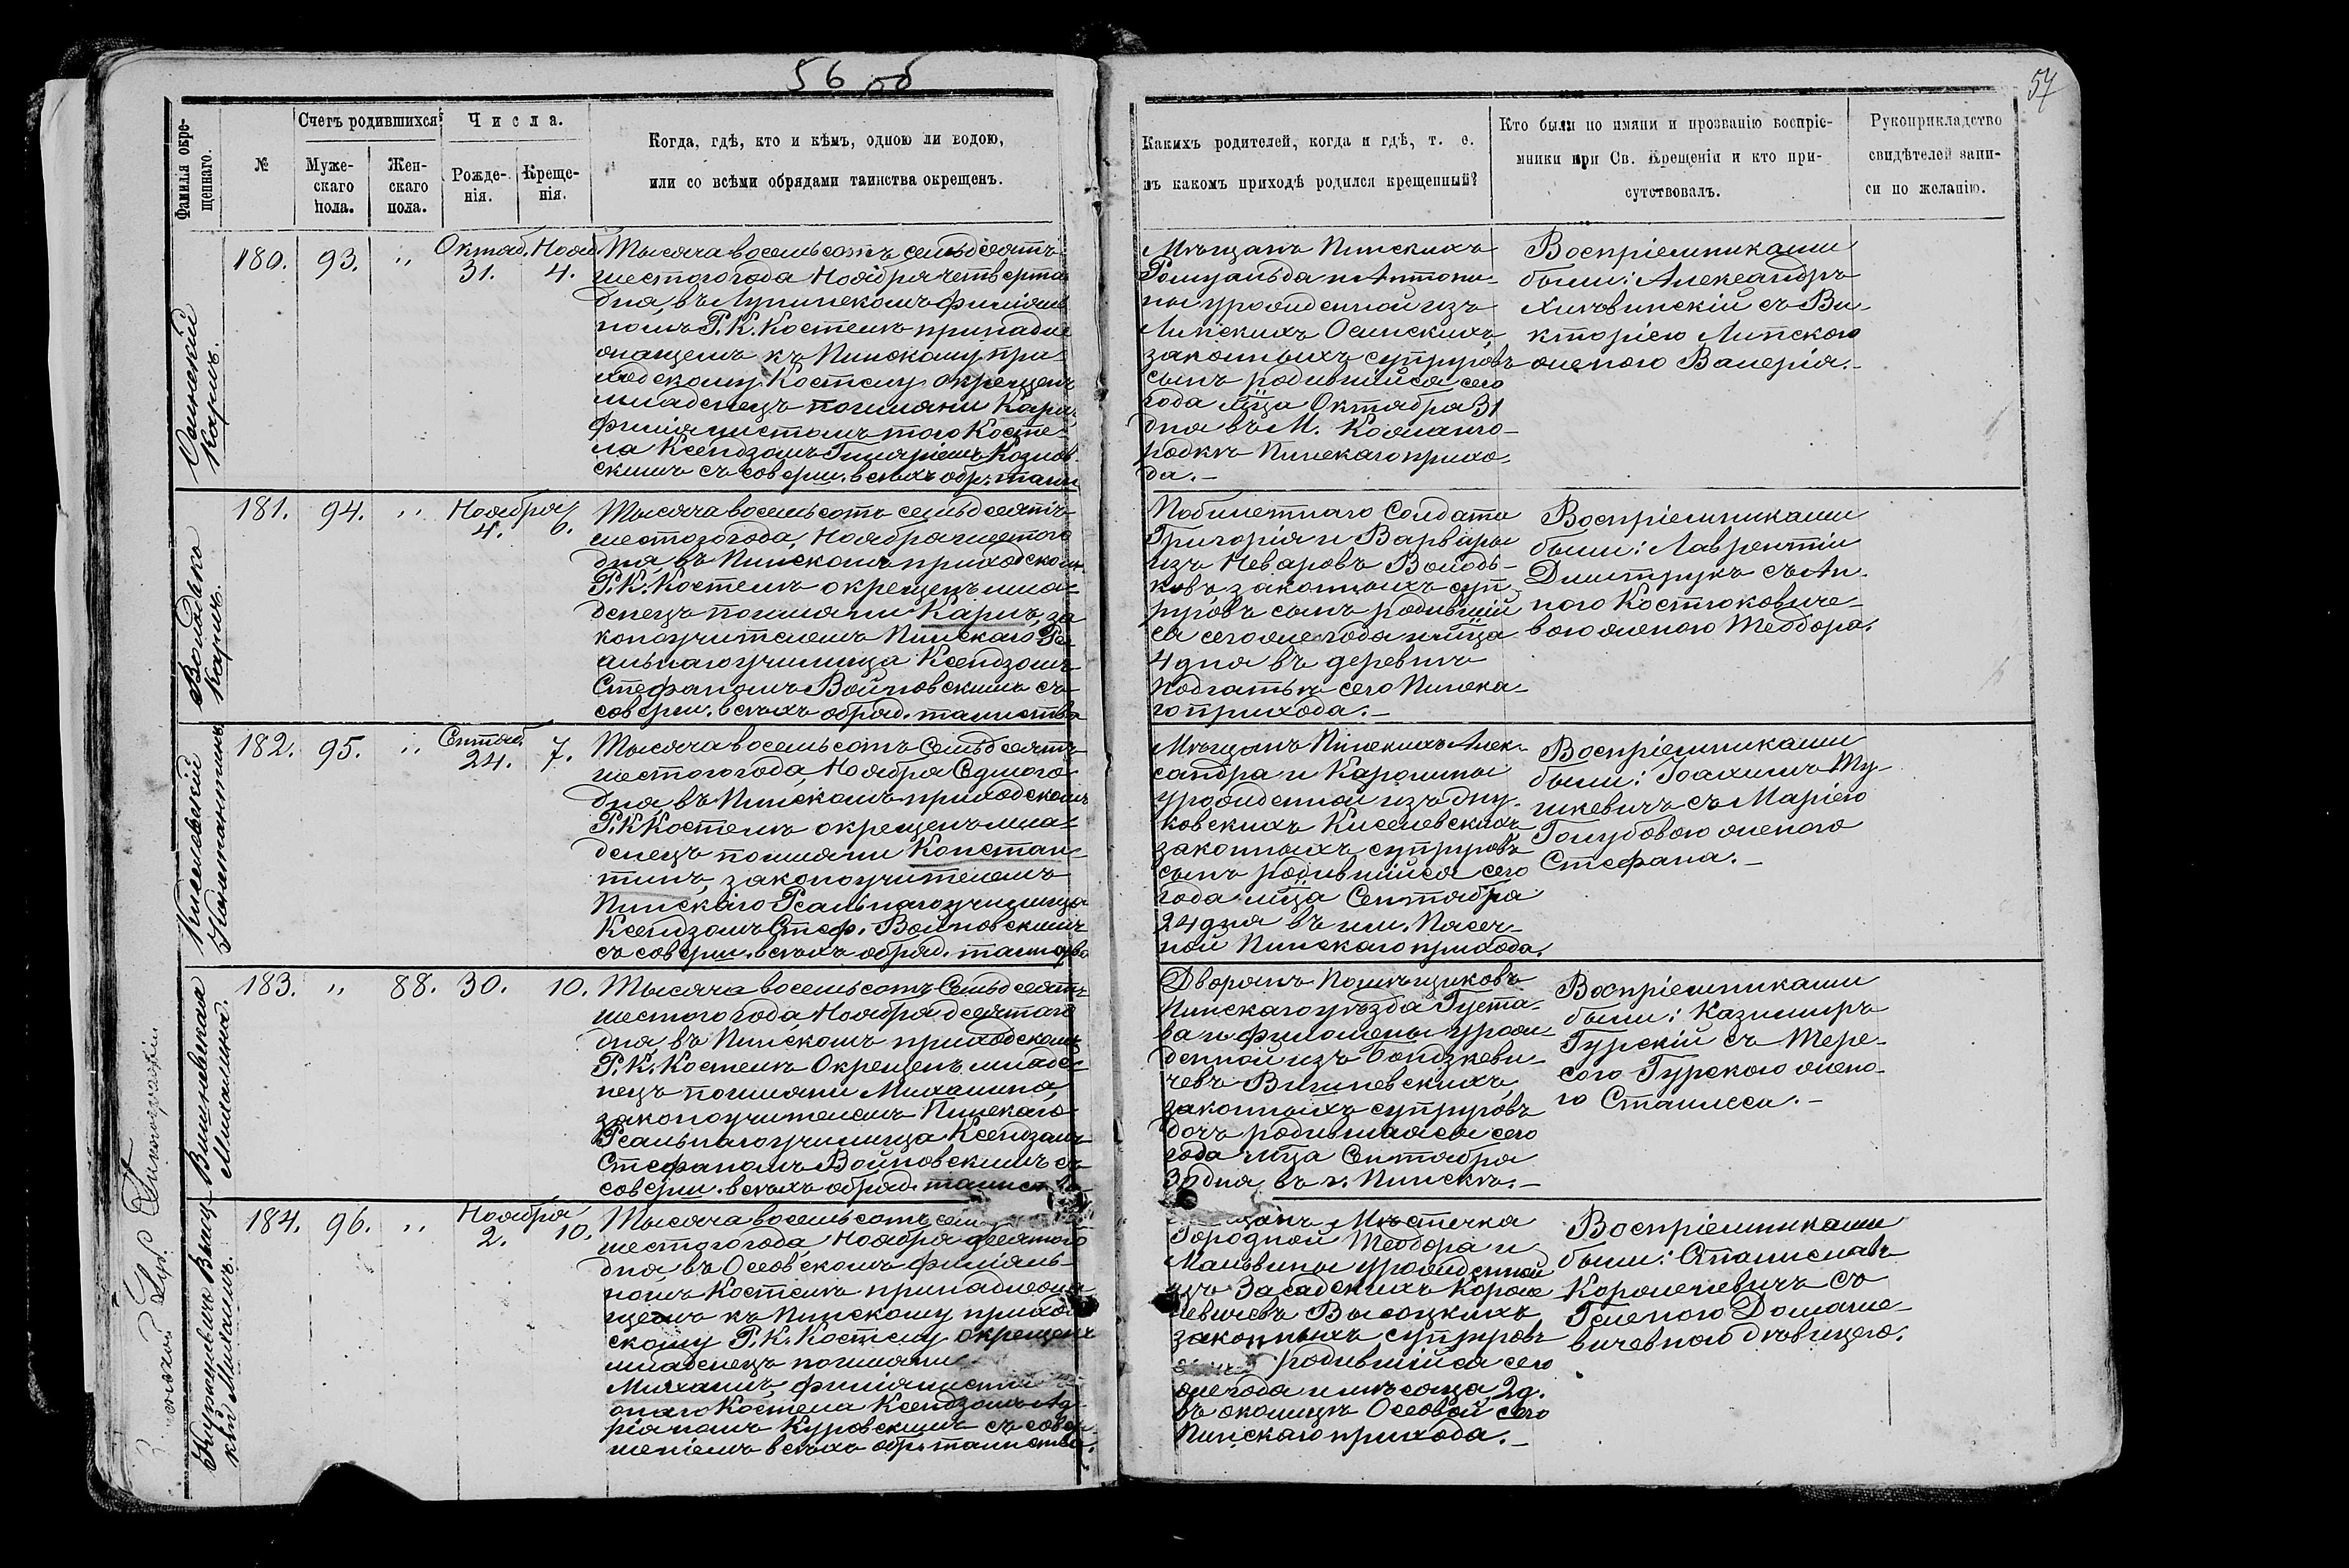 56 об
57
Фамилія окре-
щеннаго.
№
Счетъ родившихся
Муже-
скаго
пола.
Жен-
скаго
пола.
Числа.
Рожде-
нія.
Креще-
нія.
Когда, гдѣ, кто и кѣмъ, одною ли водою,
или со всѣми обрядами таинства окрещенъ.
Какихъ родителей, когда и гдѣ, т. е.
въ какомъ приходѣ родился крещенный?
Кто были по имяни и прозванію воспріе-
мники при Св. Крещеніи и кто при-
сутствовалъ.
Рукоприкладство
свидѣтелей запи-
си по желанію.
Осинскій
Карлъ.
180.
93.
"
Октяб.
31.
Нояб.
4.
Тысяча восемьсотъ семьдесятъ
шестого года Ноября четверта
дня, въ Лунинскомъ филіаль
номъ Р. К. Костелѣ принадле
жащемъ къ Пинскому при
ходскому Костелу окрещенъ
младенецъ по имяни Карлъ
филіялистомъ того Косте-
ла Ксендзомъ
скимъ съ соверш. всѣхъ обр. таин
Мѣщанъ Пинскихъ
Ромуальда и Антони-
ны урожденной изъ
Липскихъ Осинскихъ
законныхъ супруговъ
сынъ родившійся сего
года мца Октября 31
дня въ М. Кожанго-
родкѣ Пинскаго прихо-
да.-
Воспріемниками
были: Александръ
съ Ви-
кторіею Липскою
женою Валерія.-
Володько
Карлъ.
181.
94.
"
Ноября
4.
6.
Тысяча восемьсотъ семьдесятъ
шестого года, Ноября шестого
дня, въ Пинскомъ приходскомъ
Р. К. Костелѣ окрещенъ мла-
денецъ по имяни Карлъ, за
коноучителемъ Пинскаго Ре
альнаго училища Ксендзомъ
Стефаномъ Войновскимъ съ
соверш. всѣхъ обряд. таинства
Побилетнаго Солдата
Григорія и Варвары
изъ Неваровъ Володь-
ковъ, законныхъ суп-
руговъ сынъ родившій
ся сего же года и мца
4 дня въ деревнѣ
Подгатьѣ сего Пинска-
го прихода.-
Воспріемниками
были: Лаврентій
Дмитрукъ съ Ан-
ною Костюковиче-
вою женою Теодора.
Киселевскій
Константинъ
182.
95.
"
Сентяб.
24.
7.
Тысяча восемьсотъ Семьдесятъ
шестого года, Ноября Седмого
дня, въ Пинскомъ приходскомъ
Р. К Костелѣ окрещенъ мла-
денецъ по имяни Констан-
тинъ, законоучителемъ
Пинскаго Реальнаго училища
Ксендзомъ Стеф. Войновскимъ
съ соверш. всѣхъ обряд. таинства
Мѣщанъ Пинскихъ Алек-
сандра и Каролины
урожденной изъ
ковскихъ Киселевскихъ
законныхъ супруговъ
сынъ родившійся сего
года мца Сентября
24 дня въ им. Пасеч-
ной Пинскаго прихода.
Воспріемниками
были: Іоахимъ Ту-
шкевичъ съ Маріею
Голубовою женою
Стефана.-
Вишневская
Михалина.
183.
"
88.
30.
10.
Тысяча восемьсотъ Семьдесятъ
шестого года, Ноября десятаго
дня, въ Пинскомъ приходскомъ
Р. К. Костелѣ Окрещенъ младе-
нецъ по имяни Михалина,
законоучителемъ Пинскаго
Реальнаго училища Ксендзомъ
Стефаномъ Войновскимъ съ
соверш. всѣхъ обряд. таинст
Дворянъ Помѣщиковъ
Пинскаго уѣзда Густа-
ва и Филомены урож-
денной изъ
чевъ Вишневскихъ,
законныхъ супруговъ
дочь родившаяся сего
года мца Сентября
30 дня въ г. Пинскѣ.-
Воспріемниками
были: Казимиръ
Гурскій съ Тере-
сою Гурскою жено-
ю Станислава.-
Высоц-
кій Михаилъ.
184.
96.
"
Ноября
2.
10.
Тысяча восемьсотъ сем
шестого года, Ноября десятаго
дня, въ Осовскомъ филіаль-
номъ Костелѣ принадлежа
щемъ къ Пинскому приход
скому Р. К. Костелу окрещенъ
младенецъ по имяни
Михаилъ филіялист
онаго Костела Ксендзомъ Ад-
ріаномъ Куровскимъ съ совер-
шеніемъ всѣхъ обр. таинства.
Мѣстечка
Городной Теодора и
Мальвины урожденной
изъ Засадскихъ Короле
невичевъ Высоцкихъ
законныхъ супруговъ
родившійся сего
же года и мѣсяца 2 д.
въ околицѣ Осовой сего
Пинскаго прихода.-
Воспріемниками
были: Станиславъ
Короленевичъ съ
Геленою Домаше-
вичевною дѣвицею.